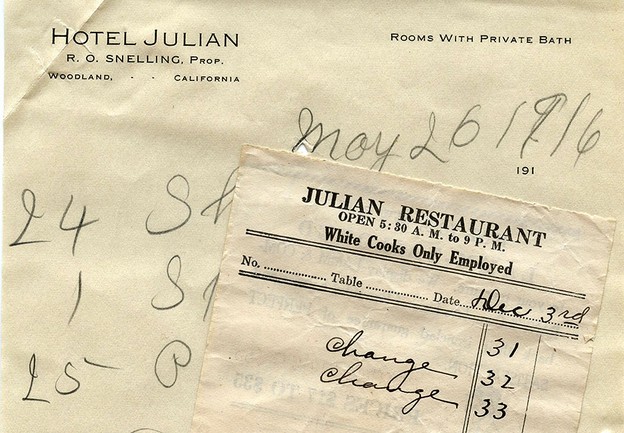 HOTEL JULIAN
R. O. SNELLING, PROP.
WOODLAND, - - CALIFORNIA
ROOMS WITH PRIVATE BATH
May 26 1916
191
24 Sh
1 S
25 P
JULIAN RESTAURANT
OPEN 5:30 A. M. to 9 P. M.
White Cooks Only Employed
No. Table Date Dec 3rd
change 31
change 32
33